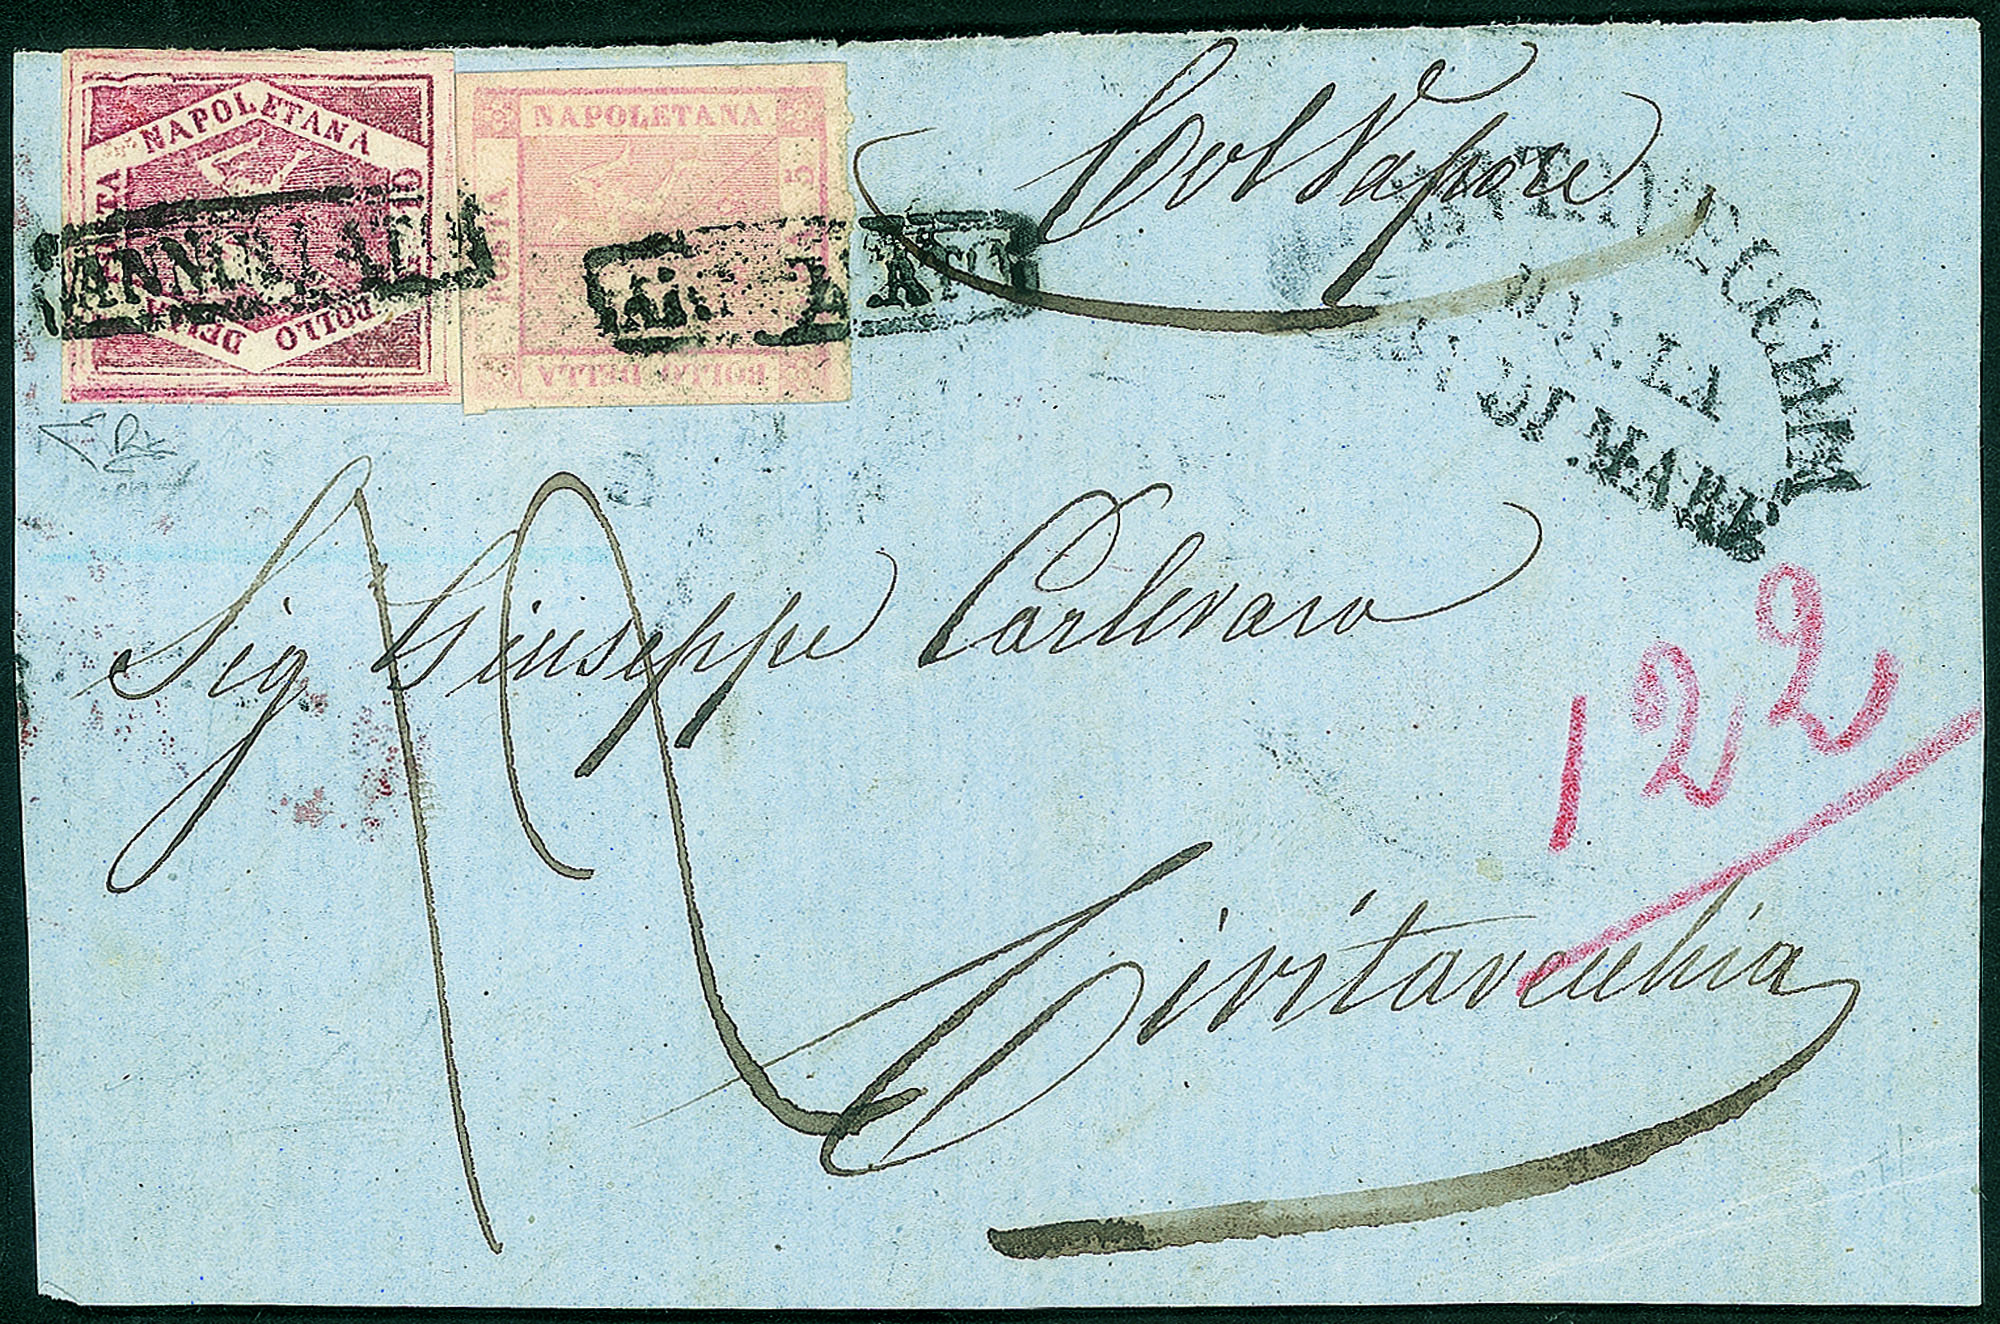 NAPOLETANA
POSTA
BOLLO DELLA
ANNULLATO
NAPOLETANA
POSTA
BOLLO DELLA
5
Col Vapore
DI MARE
Sig Giuseppe Carlevaro
122
12
Civitavecchia